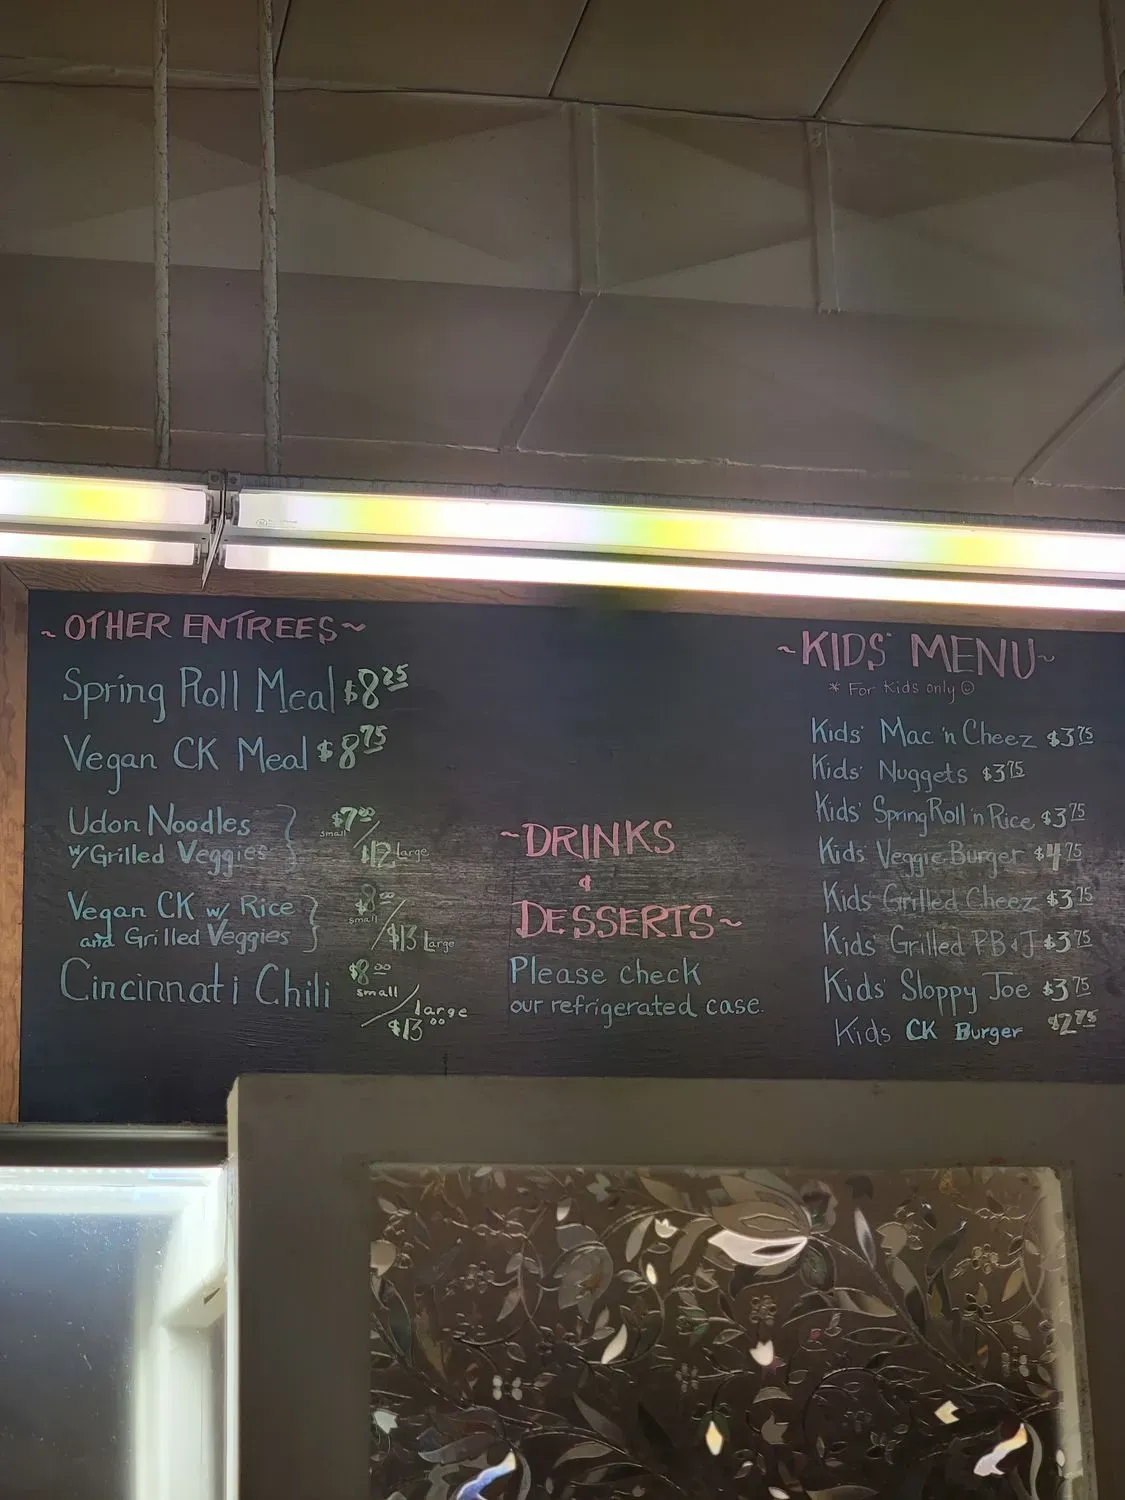 ~ OTHER ENTREES ~
Spring Roll Meal $8.25
Vegan CK Meal $8.75
Udon Noodles $7.00 small /
w/ Grilled Veggies $12 large
Vegan CK w/ Rice $8.00 small /
and Grilled Veggies $13 Large
Cincinnati Chili $8.00 small /
large $13.00
~ DRINKS
&
DESSERTS ~
Please check
our refrigerated case.
~ KIDS' MENU ~
* For Kids only ☺
Kids' Mac 'n Cheez $3.75
Kids' Nuggets $3.75
Kids' Spring Roll 'n Rice $3.75
Kids' Veggie Burger $4.75
Kids' Grilled Cheez $3.75
Kids' Grilled PB & J $3.75
Kids' Sloppy Joe $3.75
Kids CK Burger $2.75